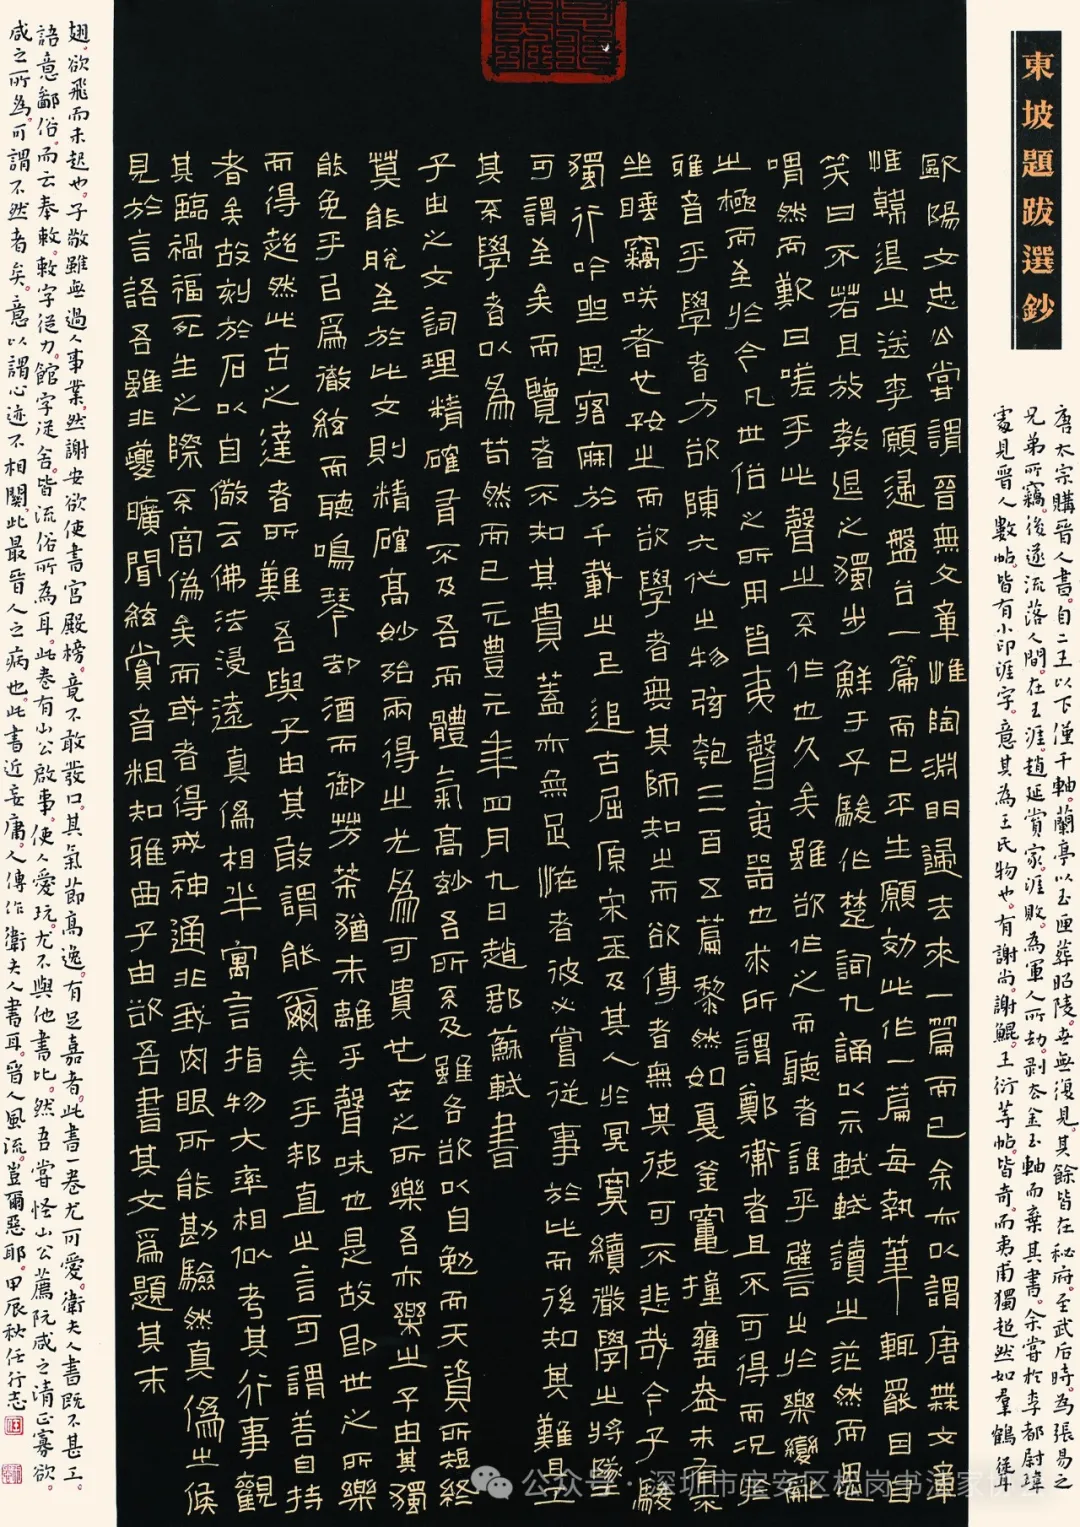 東坡題跋選鈔
唐太宗購晉人書。自二王以下僅千軸。蘭亭以玉匣葬昭陵。世無復見。其餘皆在秘府。至武后時。為張易之
兄弟所竊。後遂流落人間。在王涯。趙延賞家。涯敗。為軍人所劫。剥去金玉軸而棄其書。余嘗於李都尉瑋
處見晉人數帖。皆有小印涯字。意其為王氏物也。有謝尚。謝鯤。王衍等帖。皆奇。而夷甫獨超然如羣鶴聳
歐陽文忠公嘗謂晉無文章惟陶淵明歸去來一篇而已余亦以謂唐無文章
惟韓退之送李願歸盤谷一篇而已平生願効此作一篇每執筆輒罷因自
笑曰不若且放教退之獨步鮮于子駿作楚詞九誦以示軾軾讀之茫然而思
喟然而歎曰嗟乎此聲之不作也久矣雖欲作之而聽者誰乎譬之於樂變亂
之極而至於今凡世俗之所用皆夷聲夷器也求所謂鄭衛者且不可得而況
雅音乎學者方欲陳六代之物弦匏三百五篇黎然如戛釜竈撞甕盎未有不
坐睡竊笑者也好之而欲學者無其師知之而欲傳者無其徒可不悲哉今子駿
獨行吟坐思寤寐於千載之上追古屈原宋玉及其人於冥寞續微學之將墜
可謂至矣而覽者不知其貴蓋亦無足怪者彼必嘗從事於此而後知其難且工
其不學者以為苟然而已元豐元年四月九日趙郡蘇軾書
子由之文詞理精確有不及吾而體氣高妙吾所不及雖各欲以自勉而天資所短終
莫能脫至於此文則精確高妙殆兩得之尤為可貴也世之所樂吾亦樂之子由其獨
能免乎以為徹絃而聽鳴琴却酒而御芳茶猶未離乎聲味也是故即世之所樂
而得超然此古之達者所難吾與子由其敢謂能爾矣乎邦直之言可謂善自持
者矣故刻於石以自儆云佛法浸遠真偽相半寓言指物大率相似考其行事觀
其臨禍福死生之際不容偽矣而或者得戒神通非我肉眼所能勘驗然真偽之候
見於言語吾雖非夔曠聞絃賞音粗知雅曲子由欲吾書其文為題其末
翅。欲飛而未起也。子敬雖無過人事業。然謝安欲使書宮殿榜。竟不敢發口。其氣節高逸。有足嘉者。此書一卷尤可愛。衛夫人書既不甚工。
語意鄙俗。而云奉敕。敕字從力。館字從舍。皆流俗所為耳。此卷有山公啟事。使人愛玩。尤不與他書比。然吾嘗怪山公薦阮咸之清正寡欲。
咸之所為。可謂不然者矣。意以謂心迹不相關。此最晉人之病也。此書近妄庸。人傳作衛夫人書耳。晉人風流。豈爾惡耶。甲辰秋任行志
公众号·深圳市宝安区松岗书法家协会